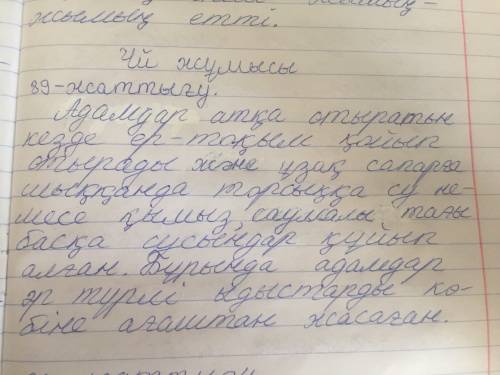 жымың етті.
Үй жұмысы
89-жаттығу.
Адамдар атқа отыратын
кезде ер-тоқым қойып
отырады және ұзақ сапарға
шыққанда торсыққа су не-
месе қымыз, саумалы тағы
басқа сусындар құйып
алған. Бұрында адамдар
әр түрлі ыдыстарды кө-
біне ағаштан жасаған.